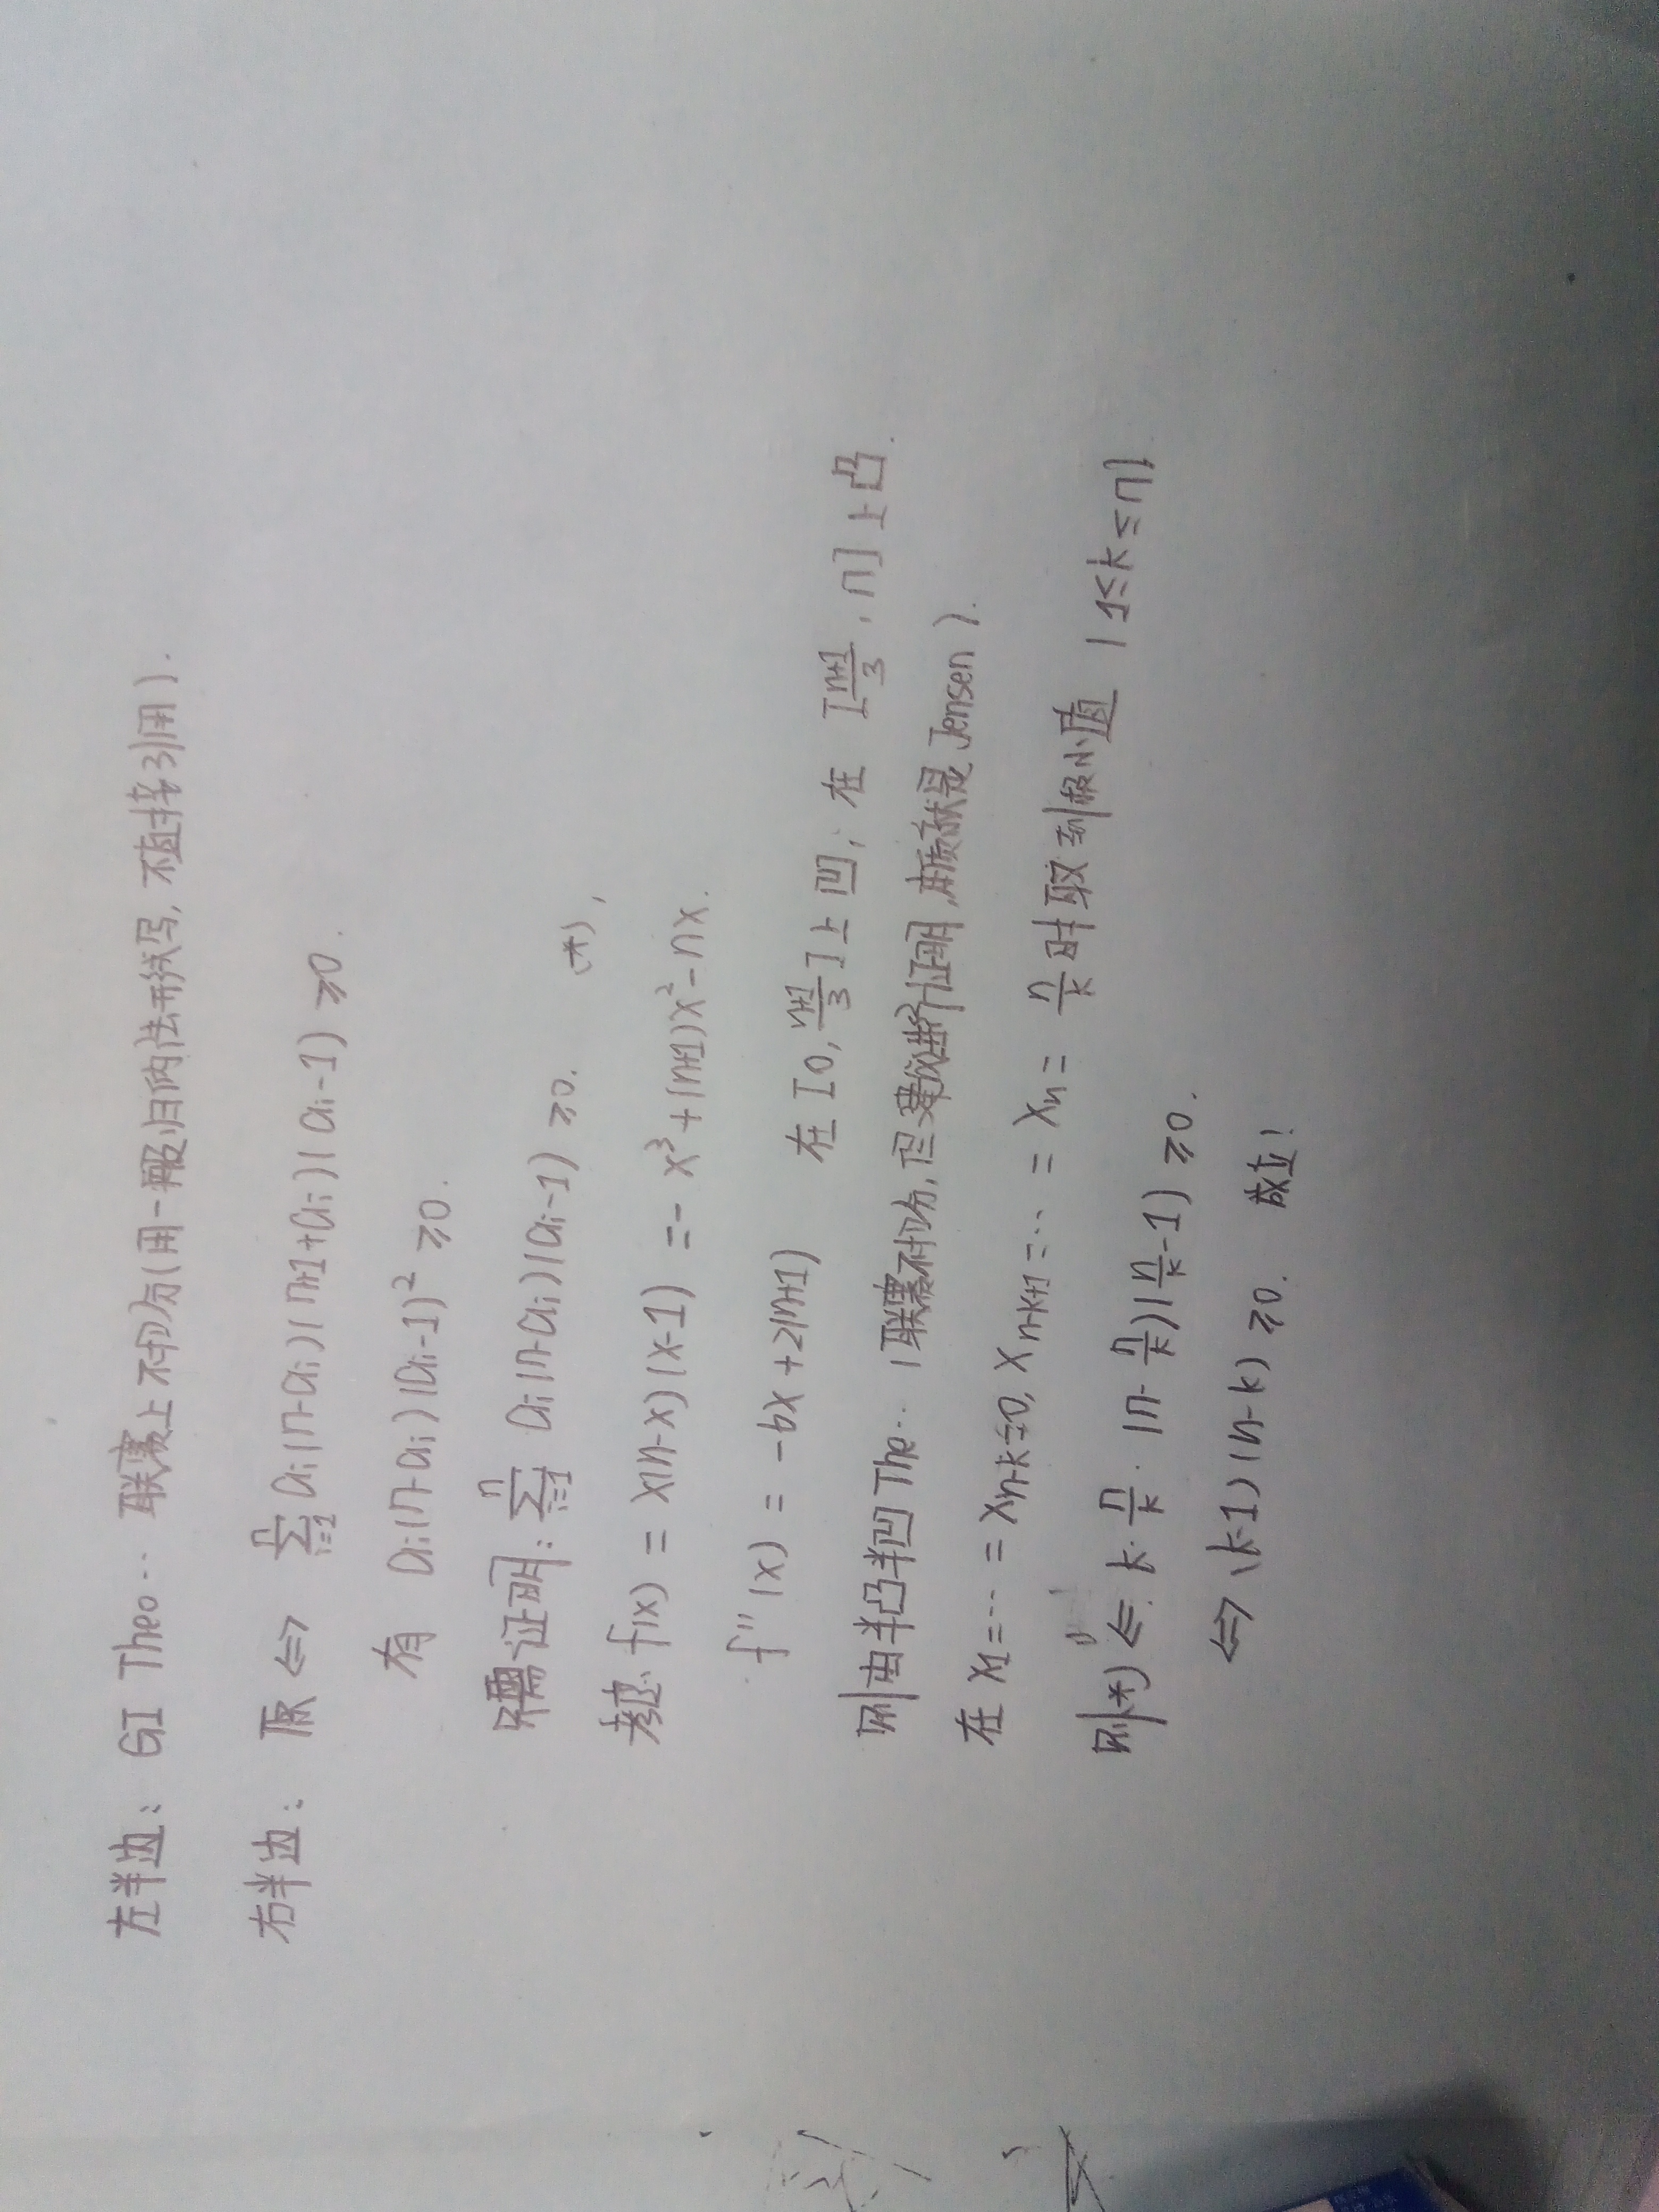 左半边: GI Theo.. 联赛上不扣分(用一般归纳法书写, 不直接引用).
右半边: 原 ⇔ \sum_{i=1}^{n} a_i(n-a_i)(n+1+a_i)(a_i-1) ≥0.
有 a_i(n-a_i)(a_i-1)^2 ≥0.
只需证明: \sum_{i=1}^{n} a_i(n-a_i)(a_i-1) ≥0. (*),
考虑 f(x) = x(n-x)(x-1) = -x^3+(n+1)x^2-nx.
f''(x) = -6x+2(n+1) 在[0, \frac{n+1}{3}]上凹; 在 [\frac{n+1}{3}, n]上凸.
则由半凸半凹 The.. (联赛不扣分, 但要证明, 本质就是 Jensen).
在 x_1=...=x_{n-k}=0, x_{n-k+1}=...=x_n=\frac{n}{k}时取到极小值 (1≤k≤n)
则(*) ⇐ k·\frac{n}{k}·(n-\frac{n}{k})(\frac{n}{k}-1) ≥0.
⇔ (k-1)(n-k) ≥0. 成立!